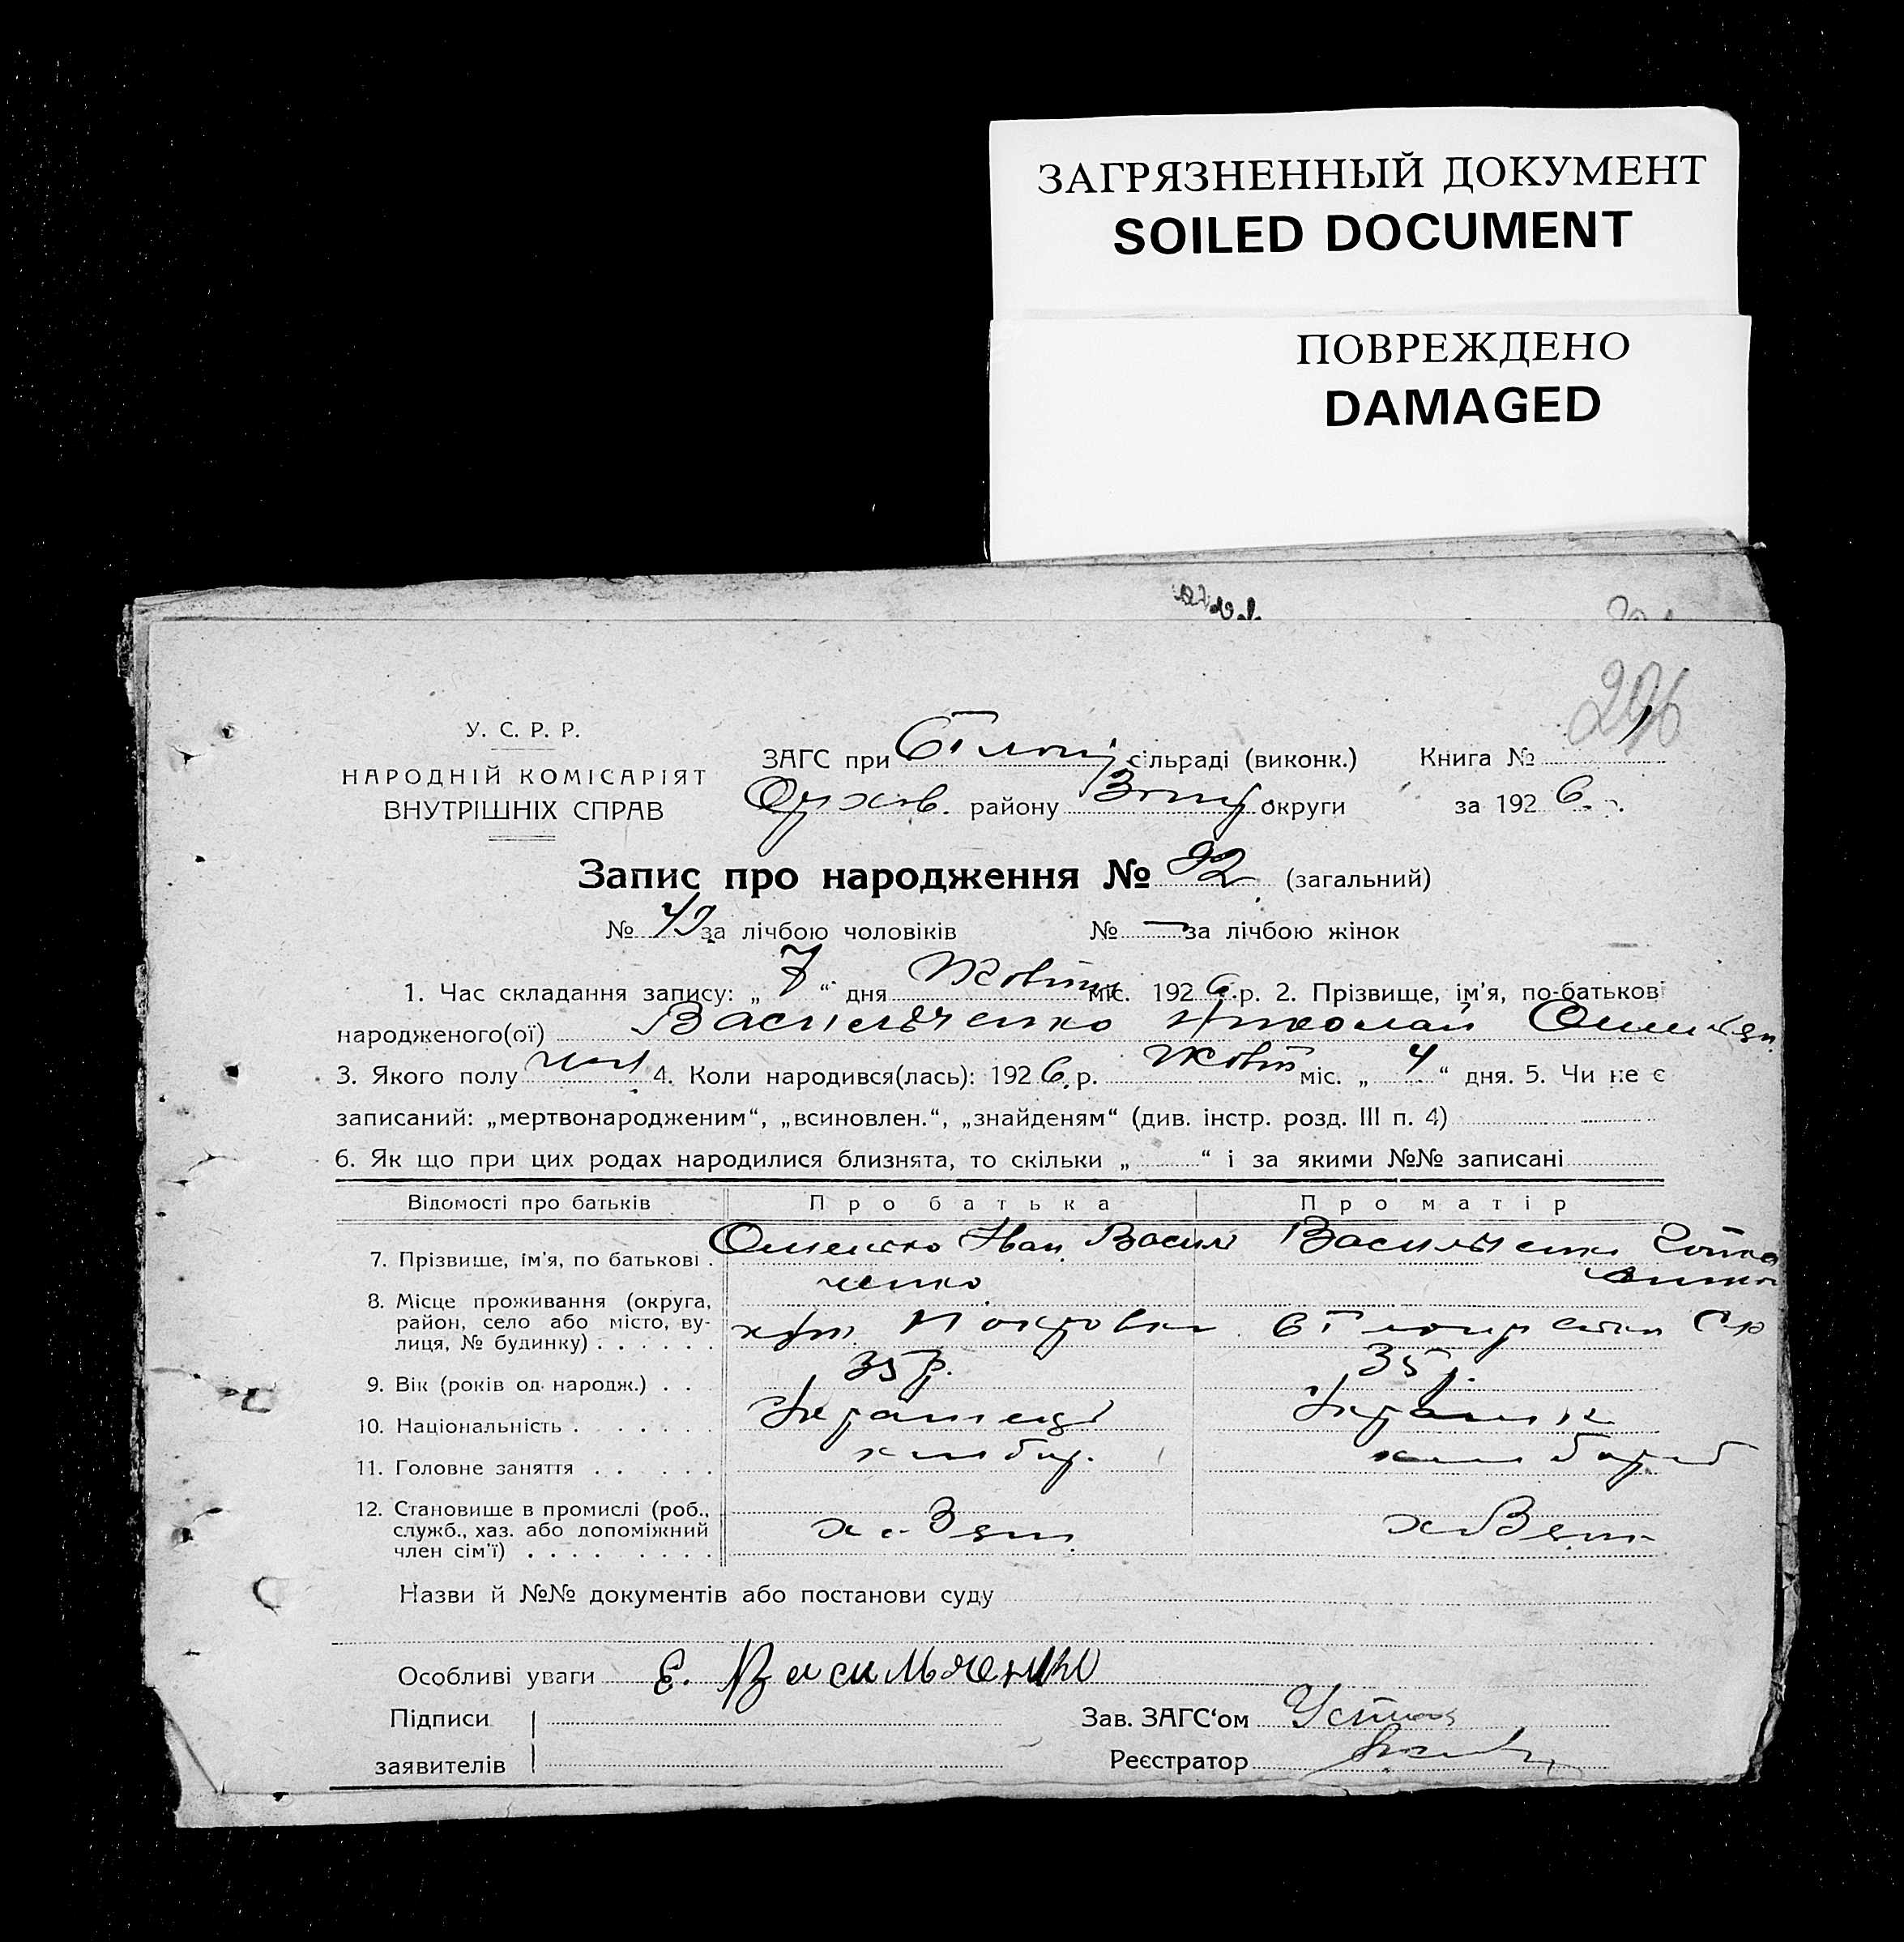 ЗАГРЯЗНЕННЫЙ ДОКУМЕНТ
SOILED DOCUMENT
ПОВРЕЖДЕНО
DAMAGED
296
У. С. Р. Р.
НАРОДНІЙ КОМІСАРІЯТ
ВНУТРІШНІХ СПРАВ
ЗАГС при сільраді (виконк.) Книга №
району округи за 1926 р.
Запис про народження № 92 (загальний)
№ 49 за лічбою чоловіків № — за лічбою жінок
1. Час складання запису: „ 7 “ дня Жовтня міс. 1926 р. 2. Прізвище, ім'я, по-батькові
народженого(ої) Васильченко Николай
3. Якого полу чол 4. Коли народився(лась): 1926 р. Жовт міс. „ 4 “ дня. 5. Чи не є
записаний: „мертвонародженим“, „всиновлен.“, „знайденям“ (див. інстр. розд. III п. 4)
6. Як що при цих родах народилися близнята, то скільки „ “ і за якими №№ записані
Відомості про батьків Про батька Про матір
7. Прізвище, ім'я, по батькові . Иван Василь Васильченко
ченко
8. Місце проживання (округа,
район, село або місто, ву-
лиця, № будинку) . . . . . . хут. Покровка
9. Вік (років од. народж.) . . 35 р. 35 р.
10. Національність . . . . . . Українець Україн
11. Головне заняття . . . . . хлібор. хлібороб
12. Становище в промислі (роб.,
служб., хаз. або допоміжний
член сім'ї) . . . . . . . .
Назви й №№ документів або постанови суду
Особливі уваги Е. Васильченко
Підписи Зав. ЗАГС'ом
заявителів Реєстратор